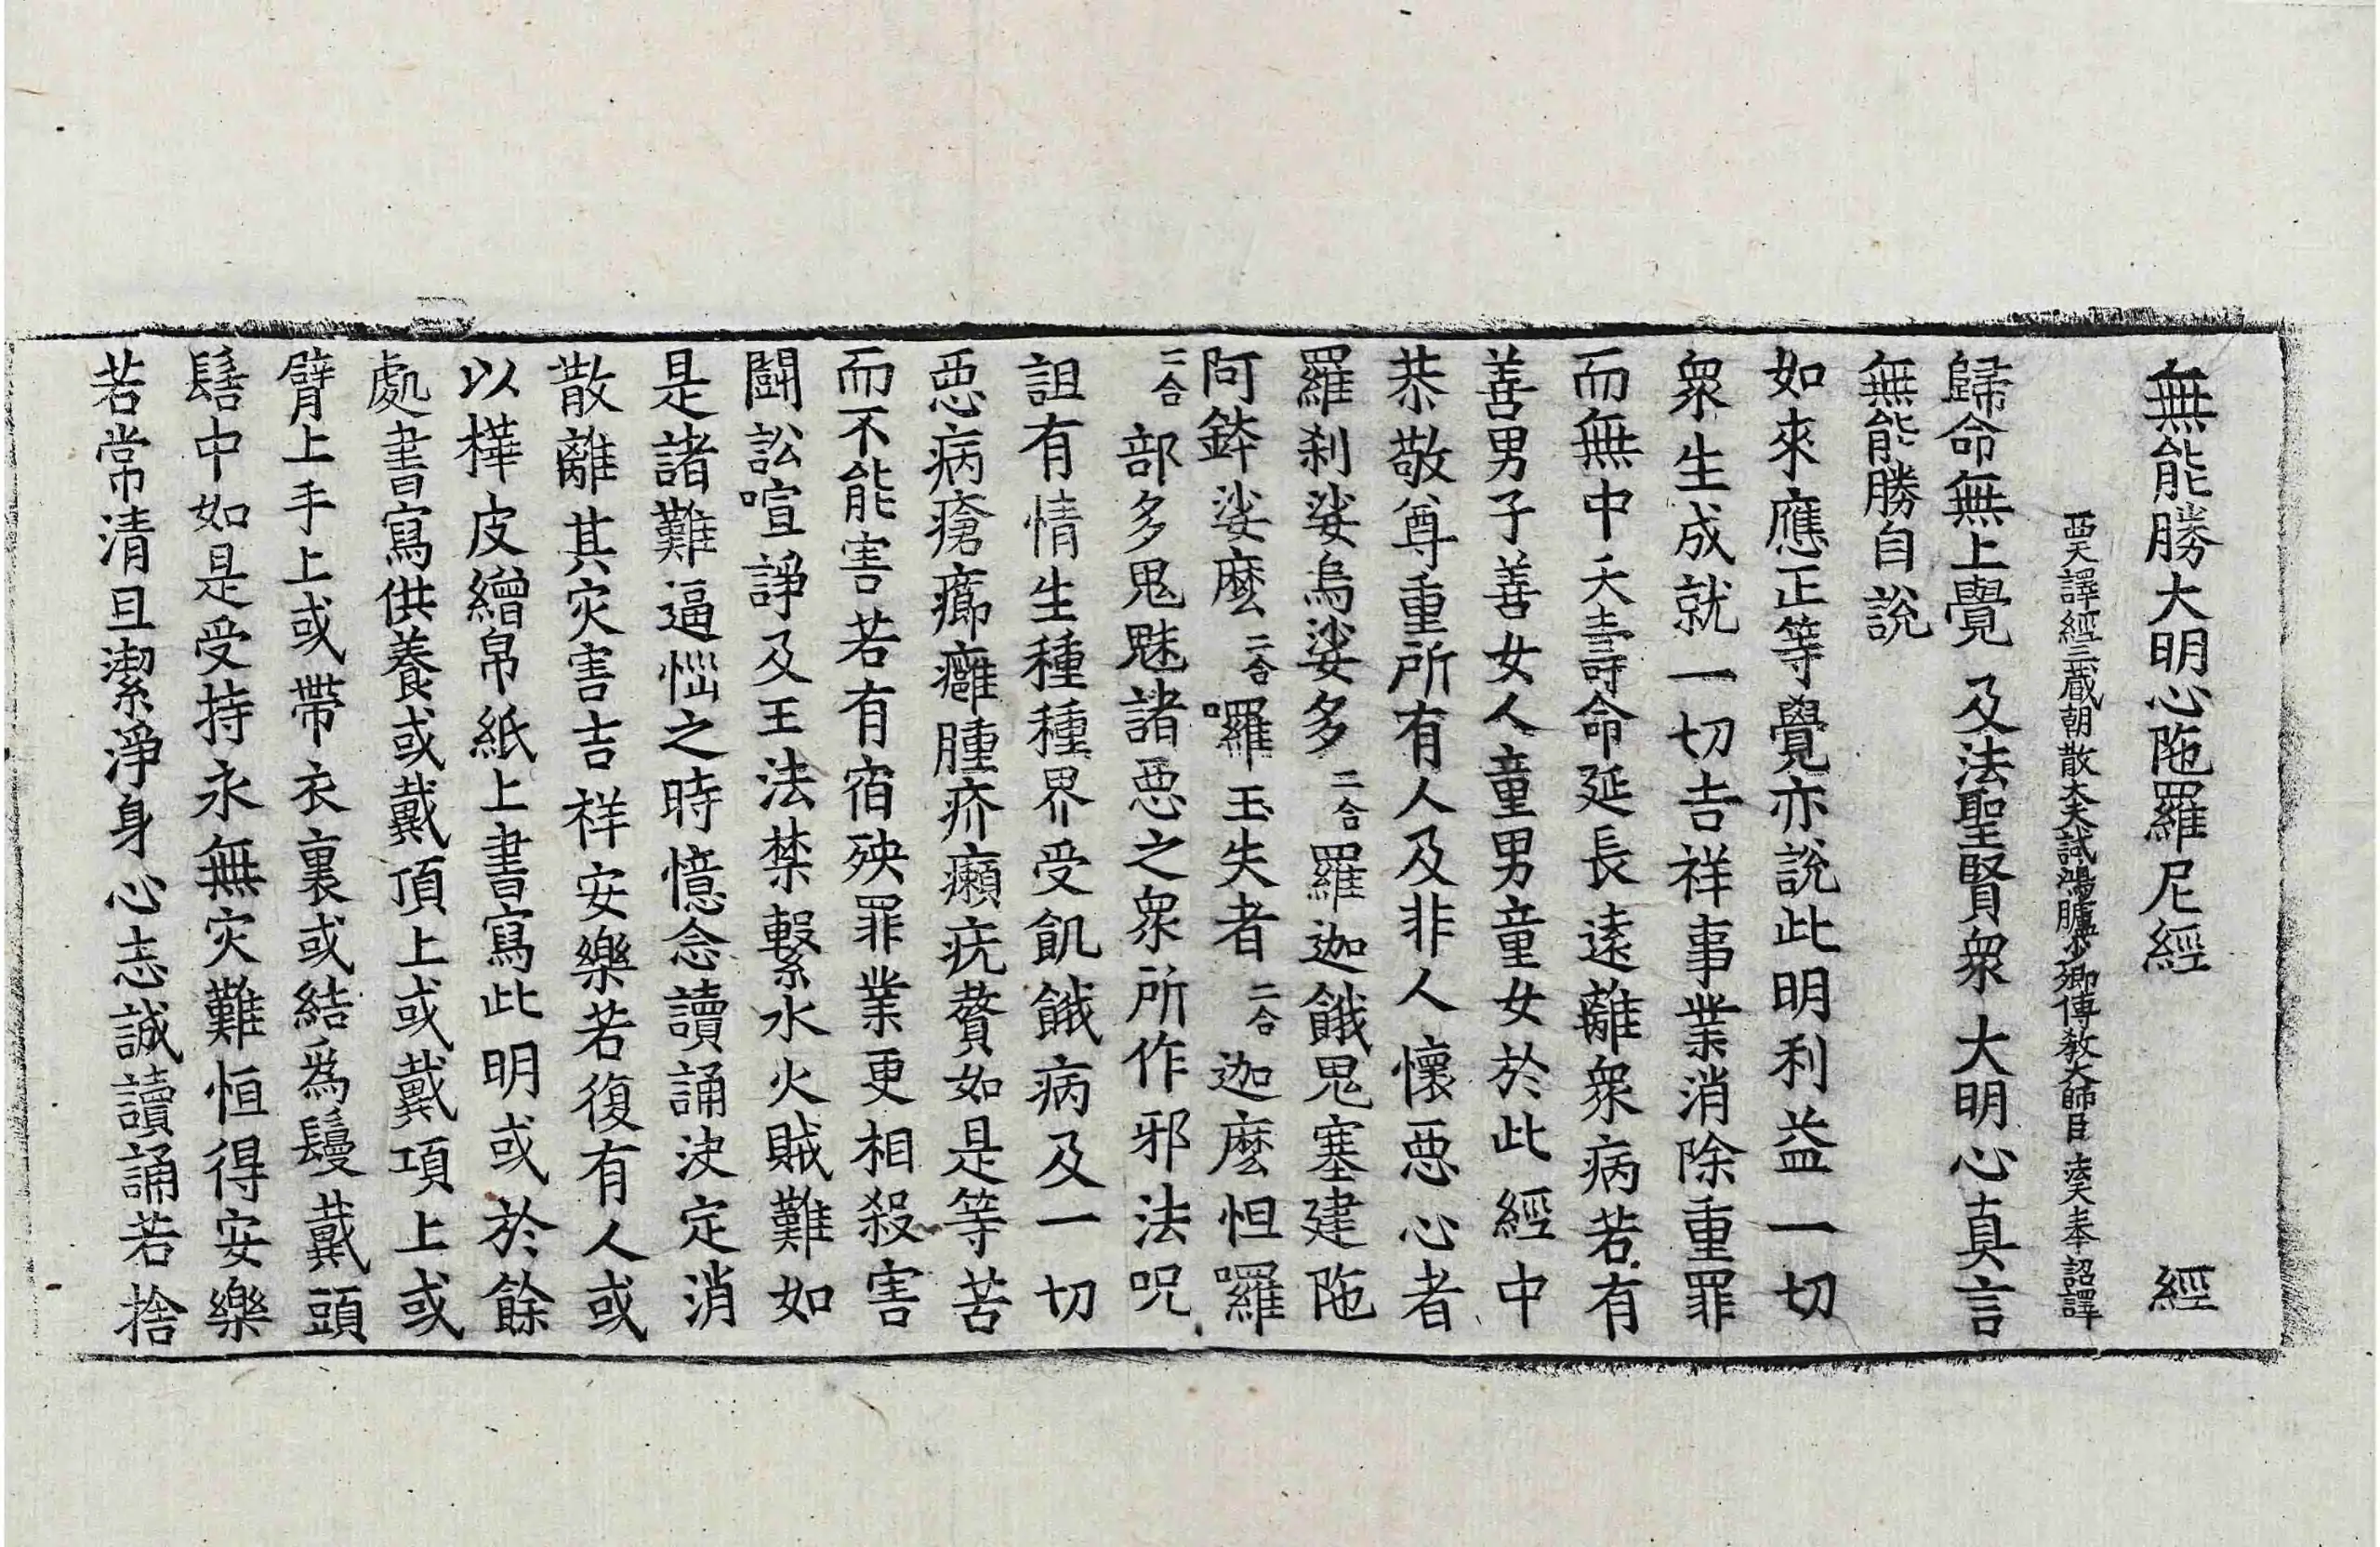 無能勝大明心陁羅尼經 經
西天譯經三藏朝散大夫試鴻臚少卿傳教大師臣法天奉詔譯
歸命無上覺 及法聖賢衆 大明心真言
無能勝自說
如來應正等覺亦說此明利益一切
衆生成就一切吉祥事業消除重罪
而無中夭壽命延長遠離衆病若有
善男子善女人童男童女於此經中
恭敬尊重所有人及非人懷惡心者
羅刹娑烏娑多二合羅迦餓鬼塞建陁
阿鉢娑麼二合囉玉失者二合迦麼怛囉
二合部多鬼魅諸惡之衆所作邪法呪
詛有情生種種界受飢餓病及一切
惡病瘡癤癰腫疥癩疣贅如是等苦
而不能害若有宿殃罪業更相殺害
鬪訟喧諍及王法禁繫水火賊難如
是諸難逼惱之時憶念讀誦決定消
散離其灾害吉祥安樂若復有人或
以樺皮繒帛紙上書寫此明或於餘
處書寫供養或戴頂上或戴項上或
臂上手上或帶衣裏或結爲鬘戴頭
髻中如是受持永無灾難恒得安樂
若常清旦潔淨身心志誠讀誦若捨